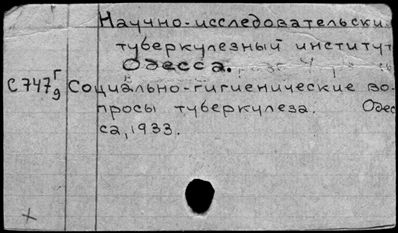 Научно-исследовательски
туберкулезный институт
Одесса.
С747г/9 Социально-гигиенические во-
просы туберкулеза. Одес
са, 1933.